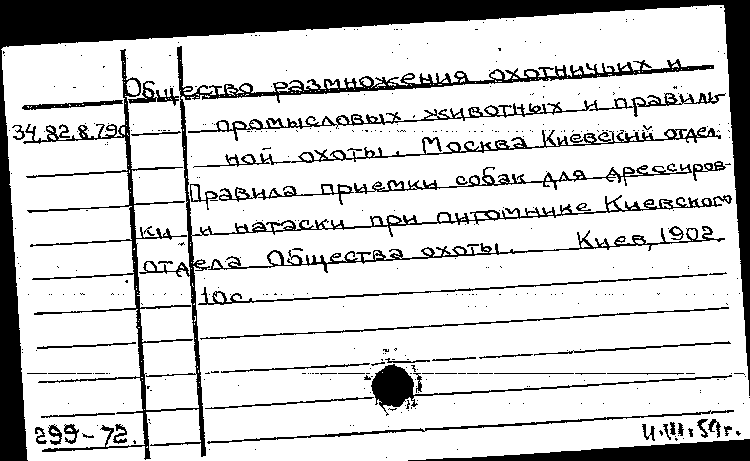 Общество размножения охотничьих и
34.82.8.79а промысловых животных и правиль
ной охоты. Москва Киевский отдел.
Правила приемки собак для дрессиров
ки и натаски при питомнике Киевского
отдела Общества охоты. Киев, 1902.
10с.
299-72.